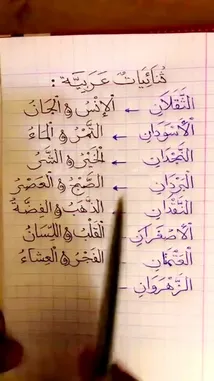 ثُنَائِيَاتٌ عَرَبِيَّة :
الثَّقَلَانِ ← الإِنْسُ وَ الْجَانّ
الأَسْوَدَانِ ← التَّمْرُ وَ المَاءُ
النَّجْدَانِ ← الخَيْرُ وَ الشَّرُّ
البَرْدَانِ ← الصُّبْحُ وَ العَصْرُ
النَّقْدَانِ ← الذَّهَبُ وَ الفِضَّةُ
الأَصْغَرَانِ ← القَلْبُ وَ اللِّسَانُ
العَتَمَتَانِ ← الفَجْرُ وَ العِشَاءُ
الزَّهْرَوَانِ ←